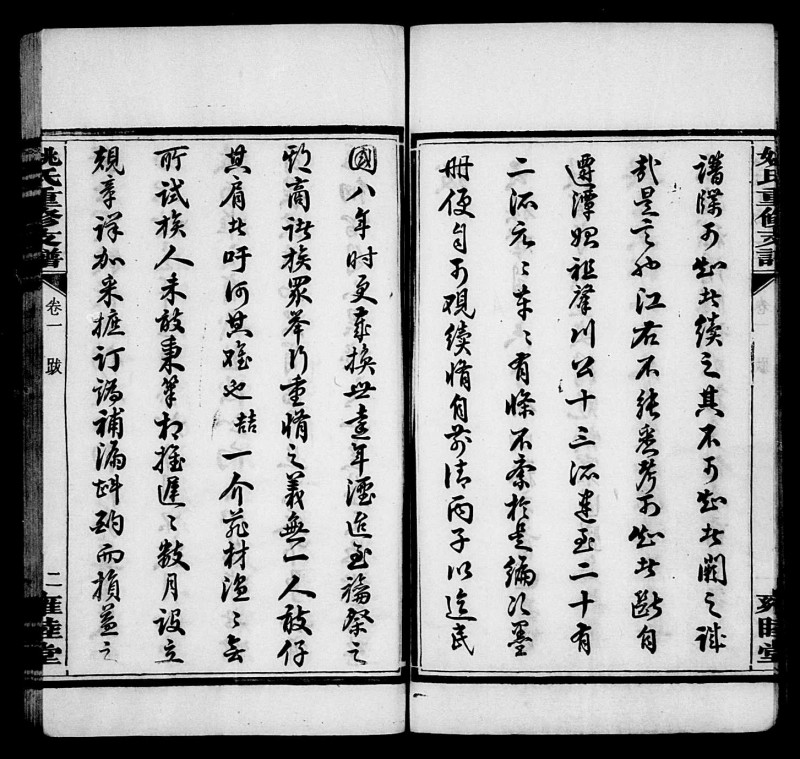 姚氏重修支譜 卷一 雍睦堂
譜牒可知者續之其不可知者闕之誠
哉是言也江右不能悉考可知者斷自
遷潭始祖肇川公十三派至二十有
二派元〻本〻有條不紊於是編次墨
冊便自可觀續脩自前清丙子以迄民
國八年時更歲換世遠年湮迨至祭之
際商諸族眾舉行重脩之義無一人敢仔
其肩者吁何其難也喆一介菲材無
所試族人未敢秉筆相推遲〻數月設立
規章詳加采摭訂譌補漏斟酌而損益之
姚氏重修支譜 卷一 跋 二 雍睦堂